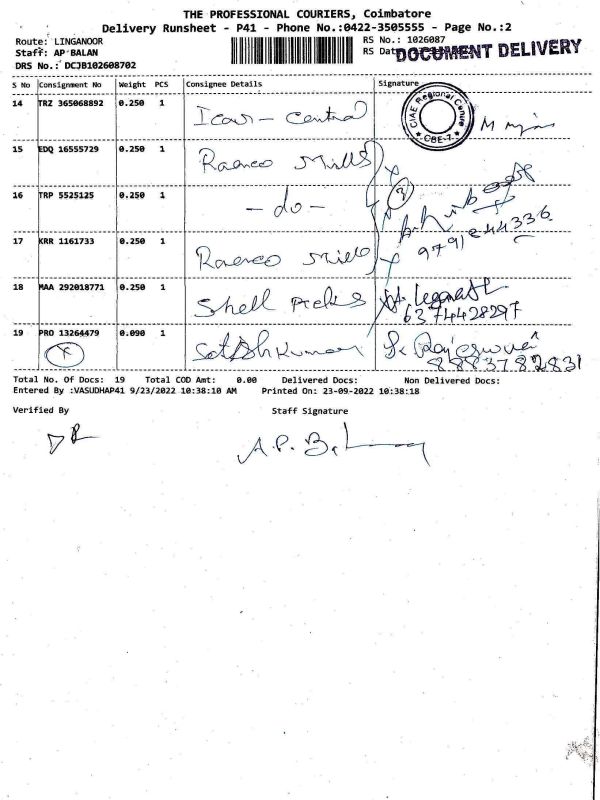 THE PROFESSIONAL COURIERS, Coimbatore
Delivery Runsheet - P41 - Phone No.:0422-3505555 - Page No.:2
Route: LINGANOOR RS No.: 1026087
Staff: AP BALAN RS Dat
DOCUMENT DELIVERY
DRS No.: DCJB102608702
S No Consignment No Weight PCS Consignee Details Signature
14 TRZ 365068892 0.250 1 Icar - Central
CIAE Regional Centre
CBE-7.
15 EDQ 16555729 0.250 1 Mills
3
16 TRP 5525125 0.250 1 - do -
9791244336
17 KRR 1161733 0.250 1
18 MAA 292018771 0.250 1 Shell
6374428297
19 PRO 13264479 0.090 1 Satishkumar
8883782831
Total No. Of Docs: 19 Total COD Amt: 0.00 Delivered Docs: Non Delivered Docs:
Entered By :VASUDHAP41 9/23/2022 10:38:10 AM Printed On: 23-09-2022 10:38:18
Verified By Staff Signature
A.P. Bal